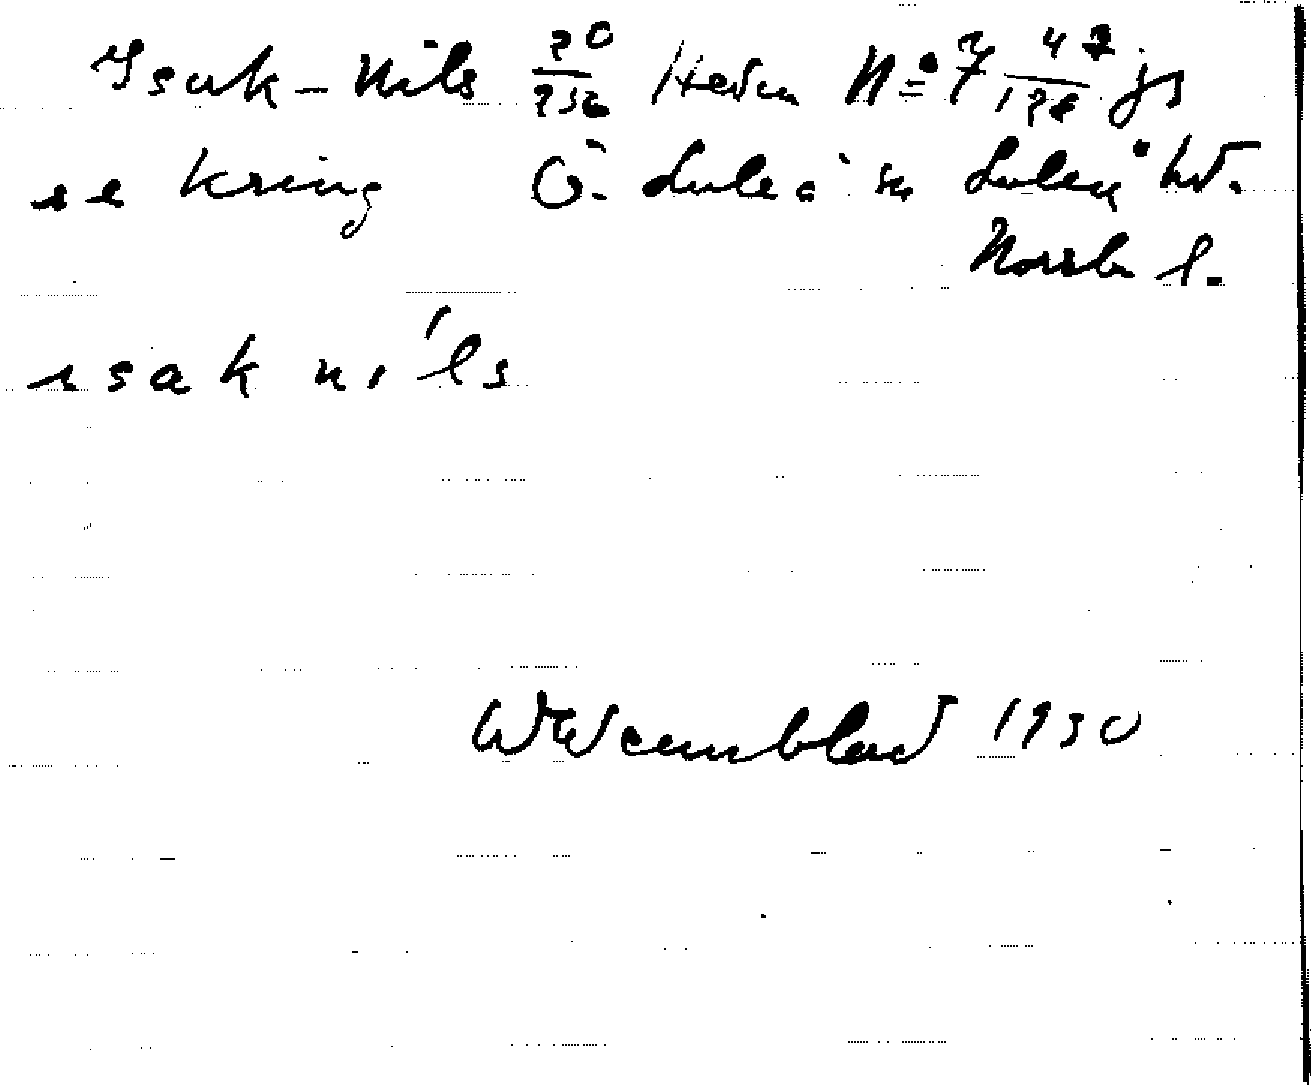 Isak-Nils 20/256 Heden N:o 7 47/128 js
se kring Ö. Luleå sn Luleå hd.
Norrb l.
isak ni'ls
W Wennblad 1930